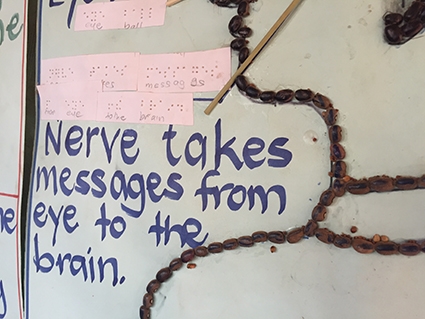 eye ball
yes messages
the eye to the brain
Nerve takes
messages from
eye to the
brain.